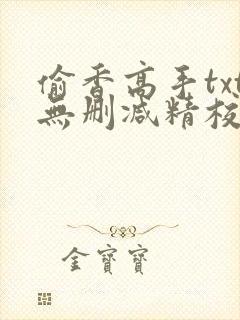 偷香高手txt
無刪減精校
金寶寶